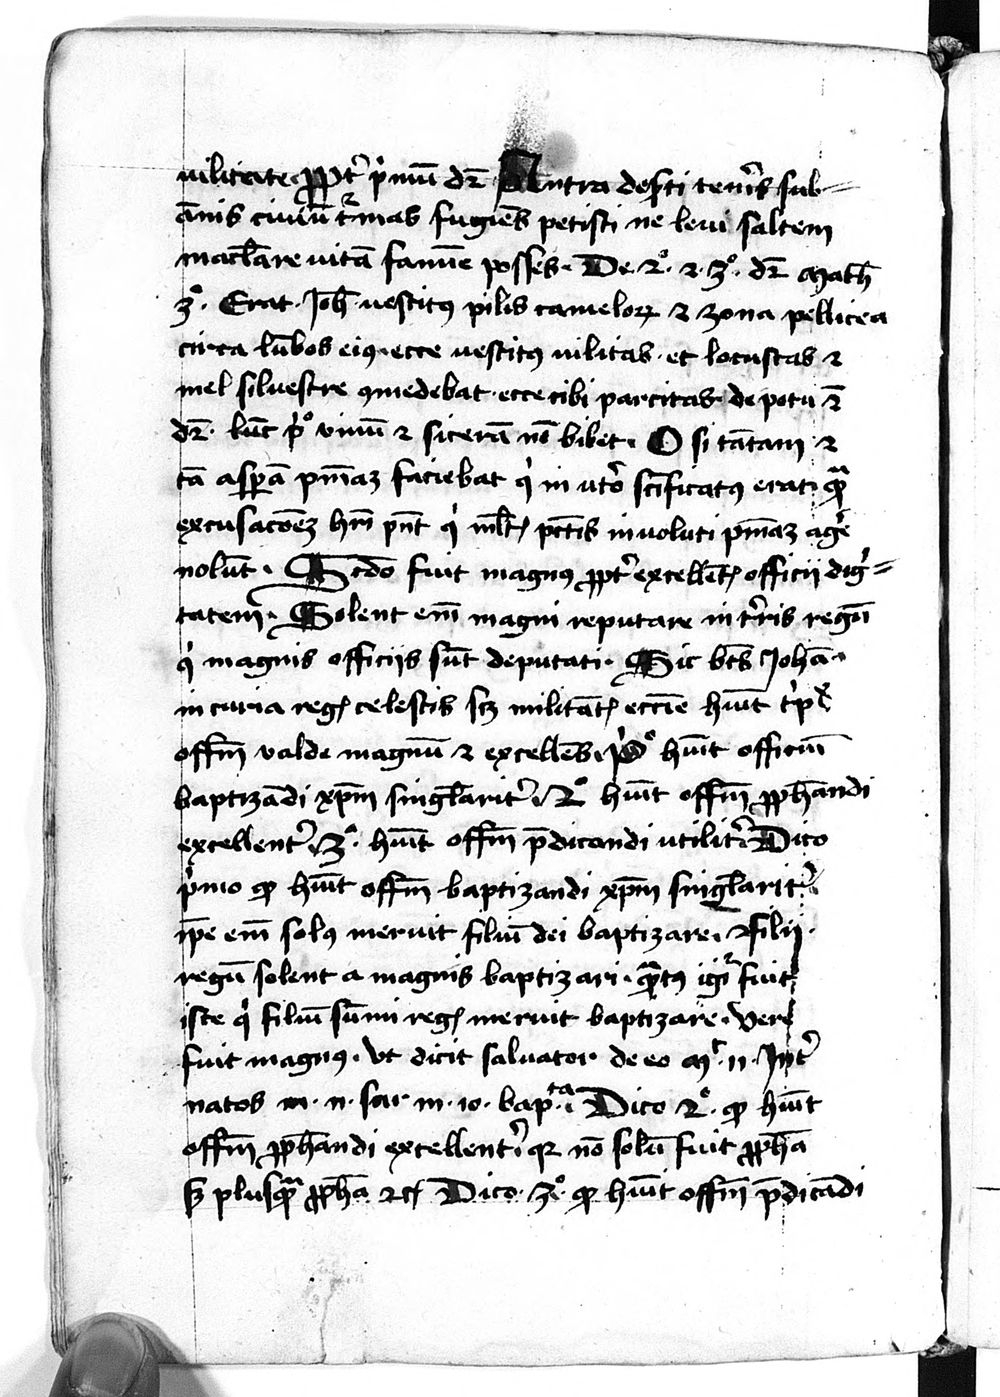 uilitate. ppt' p'mū dr̄ Antra deserti teneris sub=
ānis ciuiū t'mas fugiēs petisti ne leui saltem
mac̄lare uitā famīe posses. De 2º. ⁊ 3º. dr̄ Math̄
3º. Erat. Joh̄ uestitꝰ pilis cameloꝝ ⁊ zona pellicea
circa lūbos eiꝰ. ecce uestitꝰ uilitas. et locustas ⁊
mel siluestre ꝯmedebat. ecce cibi parcitas. de potu ⁊̄
dr̄. luc̄ pº vinū ⁊ sicerā nō bibet. O si tātam ⁊
tā asꝑā pn̄iaz faciebat q' in vt'o sc̄ificatꝰ erat. q̄
excusacōez hr̄i pn̄t q' ml't' pctīs inuoluti pn̄iaz ag'e
nolūt. Scd̄o fuit magnꝰ ppt' excellēt' officii dig'=
tatem. Solent em̄ magni reputare in t'ris regū
q' magnis officijs sūt deputati. Sic bt̄s Johā.
in curia reg' celestis sꝫ militāt' eccīe hūit t'plˣ
offm̄ valde magnū ⁊ excellēs. pº hūit officiū
baptizādi xp̄m singl̄arit'. 2º hūit offm̄ ꝓph̄andi
excellent'. 3º. hūit offm̄ p̄dicandi utilit'. Dico
p'mo ꝙ hūit offm̄ baptizandi xp̄m singl̄arit'.
ip̄e em̄ solꝰ meruit filiū dei baptizare. ⁊ filii.
regū solent a magnis baptizari. q̄tꝰ ig' fuit
iste q' filiū sūmi reg' meruit baptizare. Vere
fuit magnꝰ. Vt dicit saluator de eo Mᵗ. 11. Int'
natos m. n. sur. m. io. bap.ᵗᵃ. Dico 2º. ꝙ hūit
offm̄ ꝓph̄andi excellent'. qꝛ nō solū fuit ꝓph̄a
sꝫ plusq̄ ꝓph̄a ⁊c' Dico. 3º. ꝙ hūit offm̄ p̄dicādi